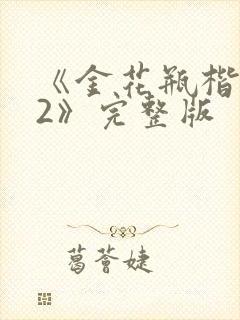 《金花瓶楷
2》完整版
葛荟婕